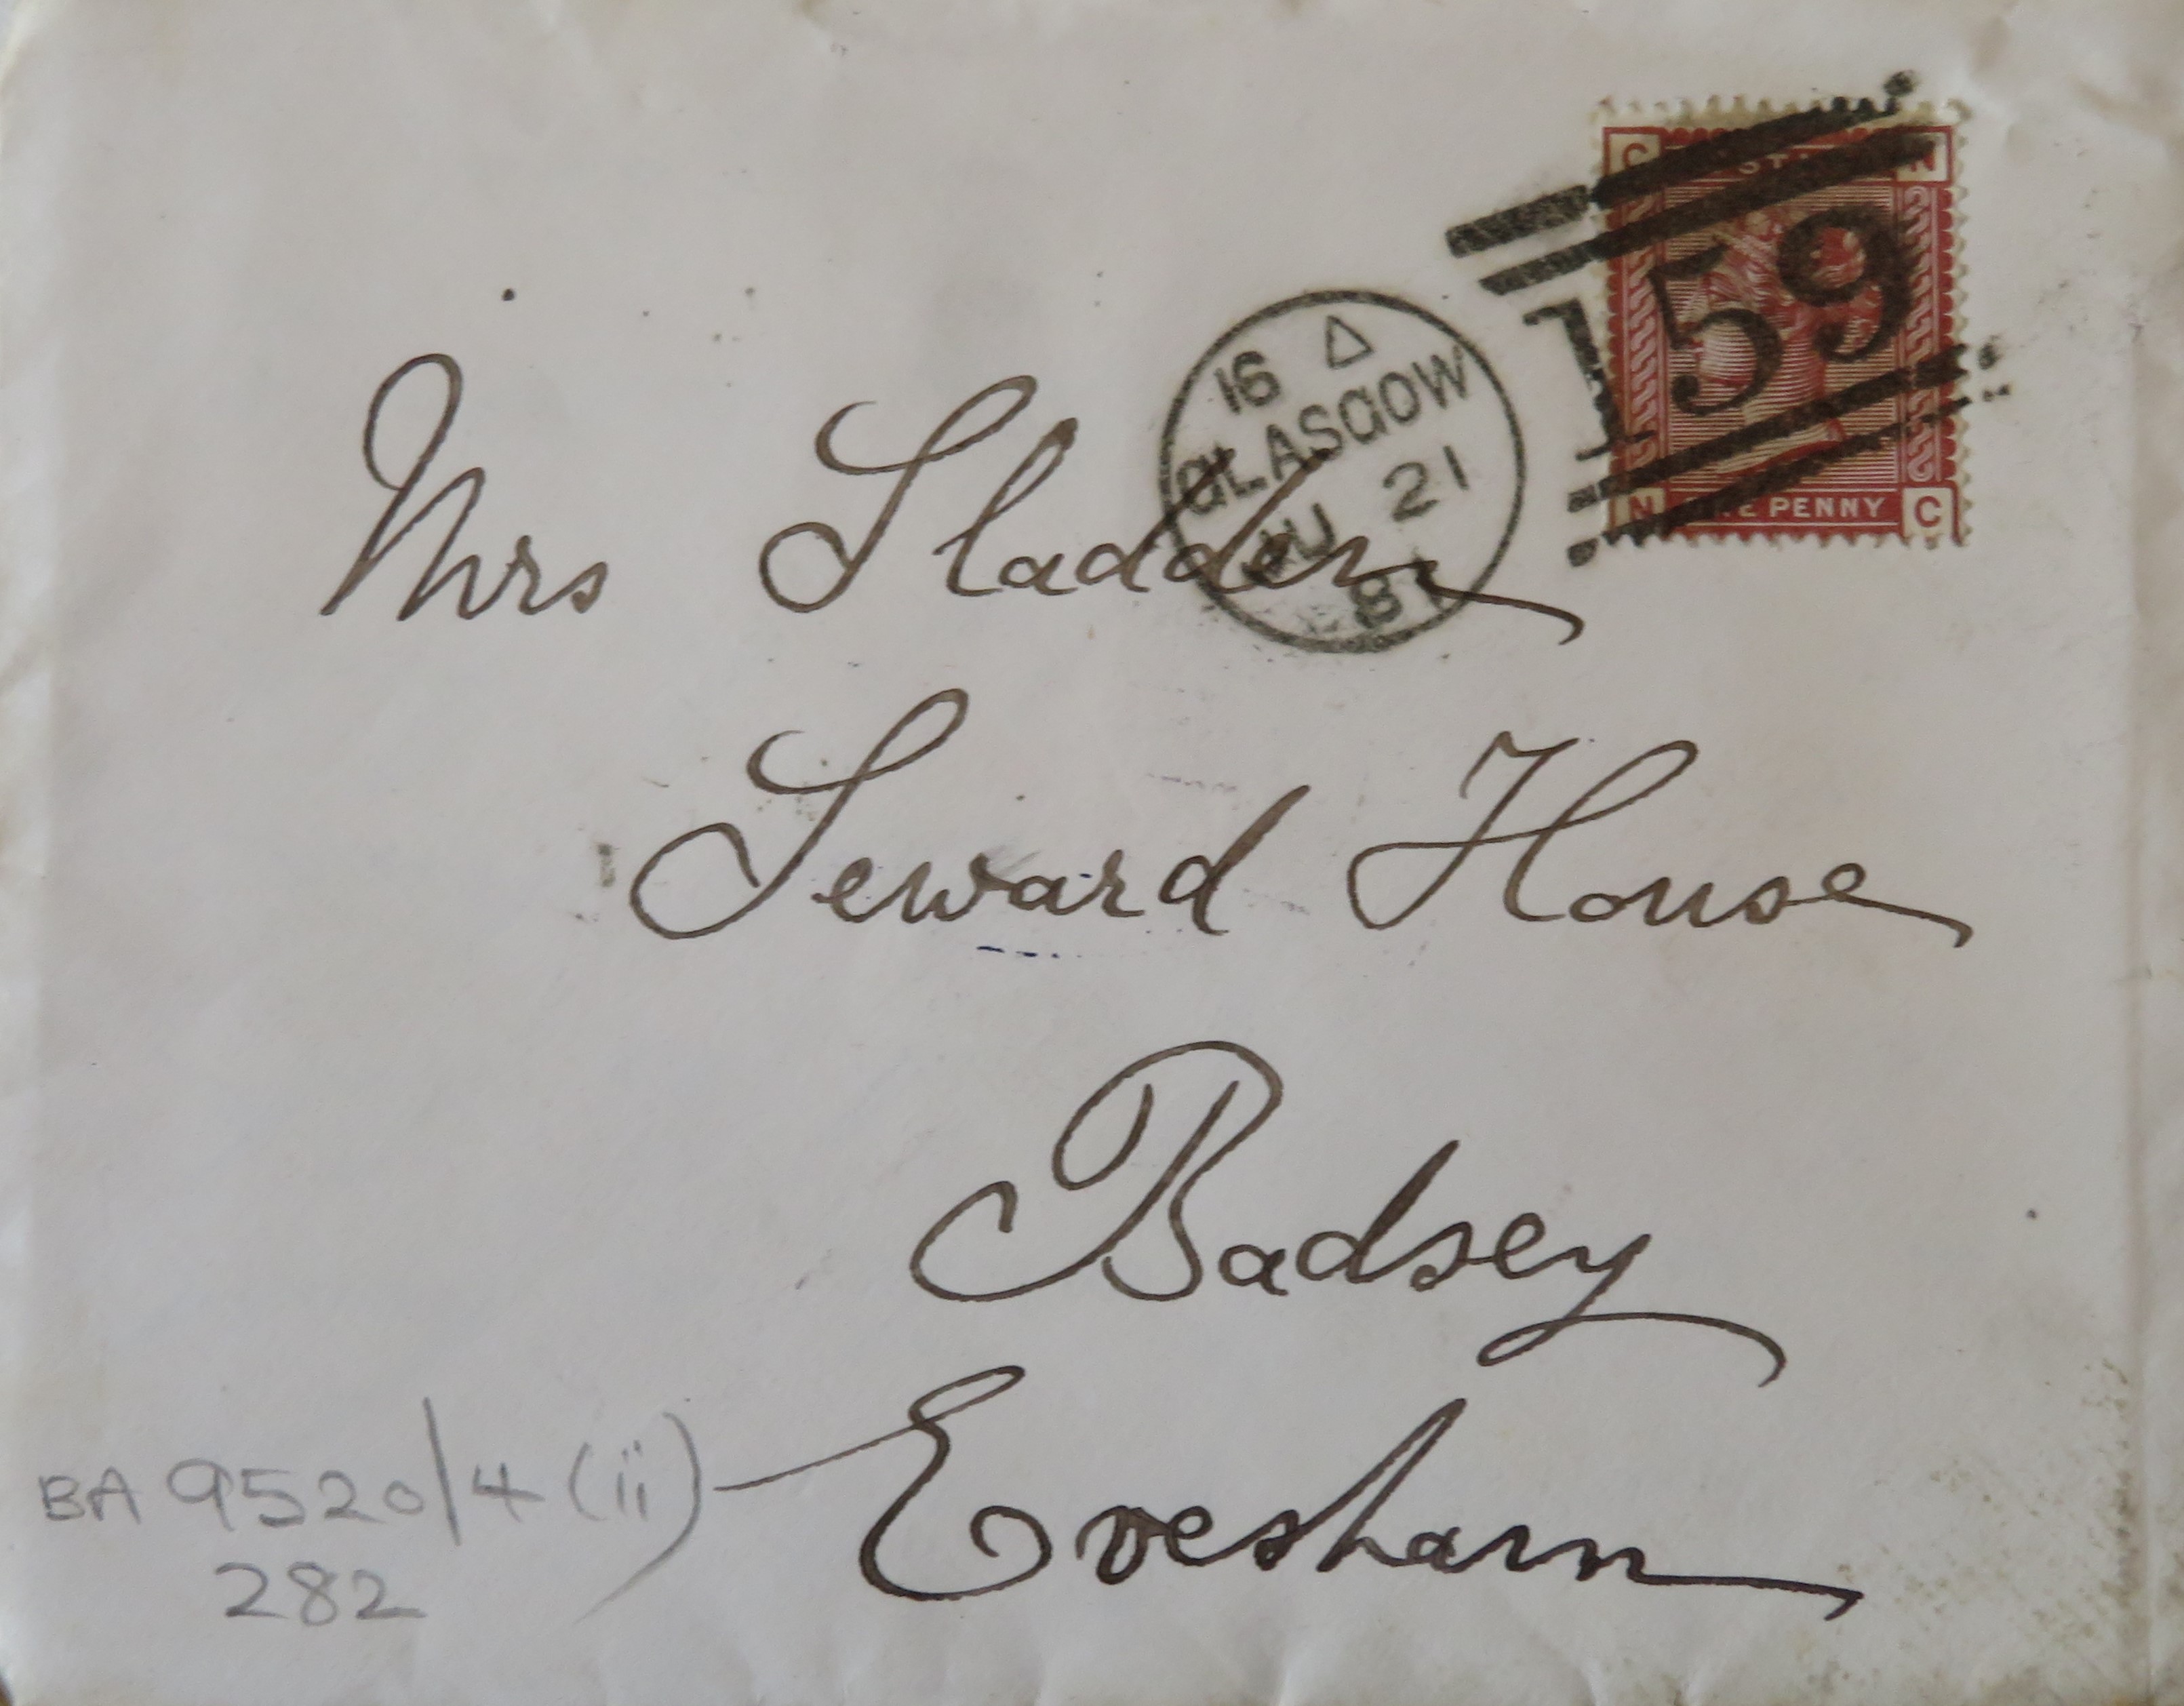 C N
159
N ONE PENNY C
16
GLASGOW
JU 21
81
Mrs Sladden
Seward House
Badsey
Evesham
BA 9520/4 (ii)
282